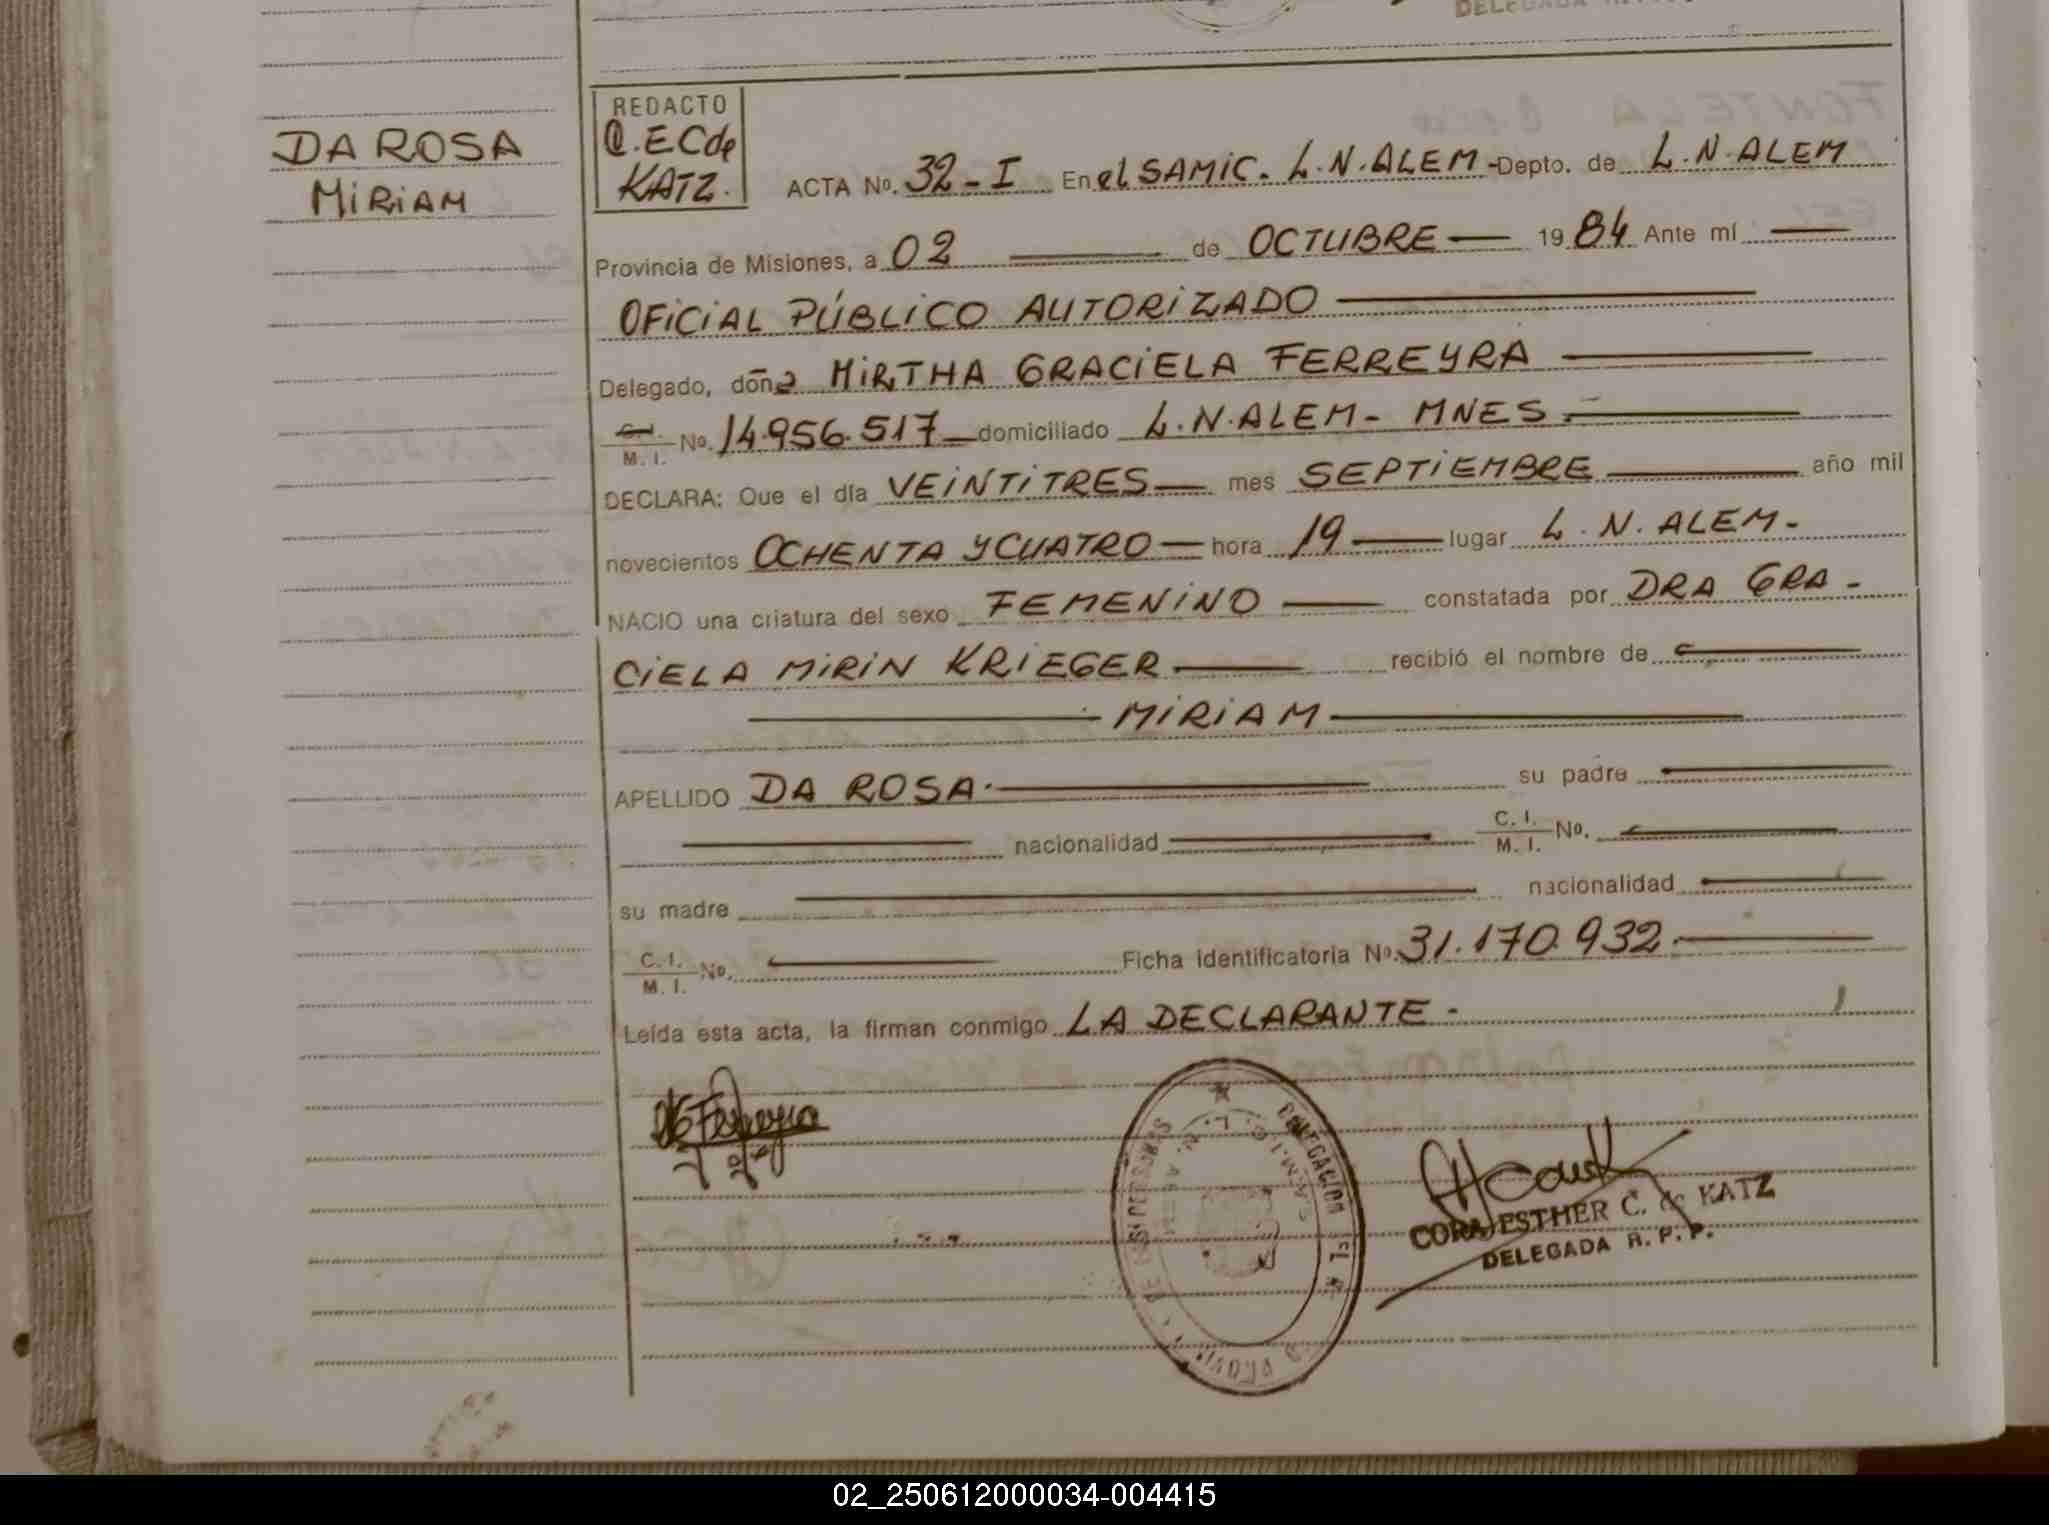 DELEGADA
DA ROSA
MIRIAM
REDACTO
C.EC de
KATZ.
ACTA No. 32-I En el SAMIC. L.N.ALEM - Depto. de L.N.ALEM
Provincia de Misiones, a 02 de OCTUBRE 1984 Ante mí
OFICIAL PÚBLICO AUTORIZADO
Delegado, doña MIRTHA GRACIELA FERREYRA
C.I. M.I. No. 14.956.517 domiciliado L.N.ALEM- MNES.
DECLARA: Que el día VEINTITRES mes SEPTIEMBRE año mil
novecientos OCHENTA Y CUATRO hora 19 lugar L.N.ALEM-
NACIO una criatura del sexo FEMENINO constatada por DRA GRA-
CIELA MIRIN KRIEGER recibió el nombre de
MIRIAM
APELLIDO DA ROSA. su padre
nacionalidad C.I. M.I. No.
su madre nacionalidad
C.I. M.I. No. Ficha identificatoria No. 31.170.932.
Leída esta acta, la firman conmigo LA DECLARANTE-
CORA ESTHER C. de KATZ
DELEGADA R.P.P.
02_250612000034-004415